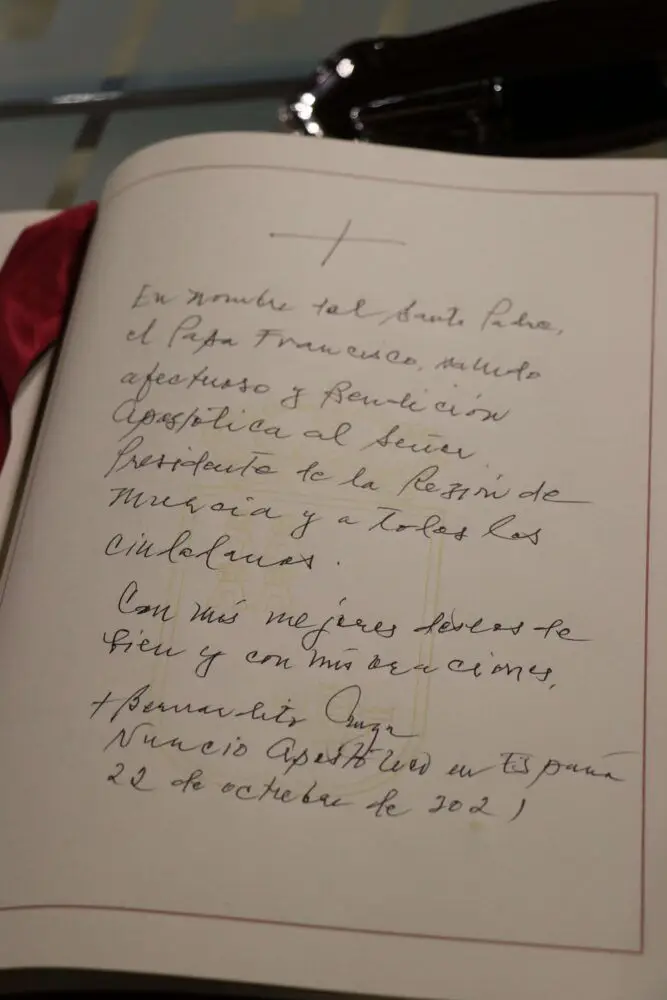 En nombre del Santo Padre,
el Papa Francisco, saludo
afectuoso y Bendición
Apostólica al Señor
Presidente de la Región de
Murcia y a todos los
ciudadanos.
Con mis mejores deseos de
bien y con mis oraciones,
+ Bernardito Auza
Nuncio Apostólico en España
22 de octubre de 2021